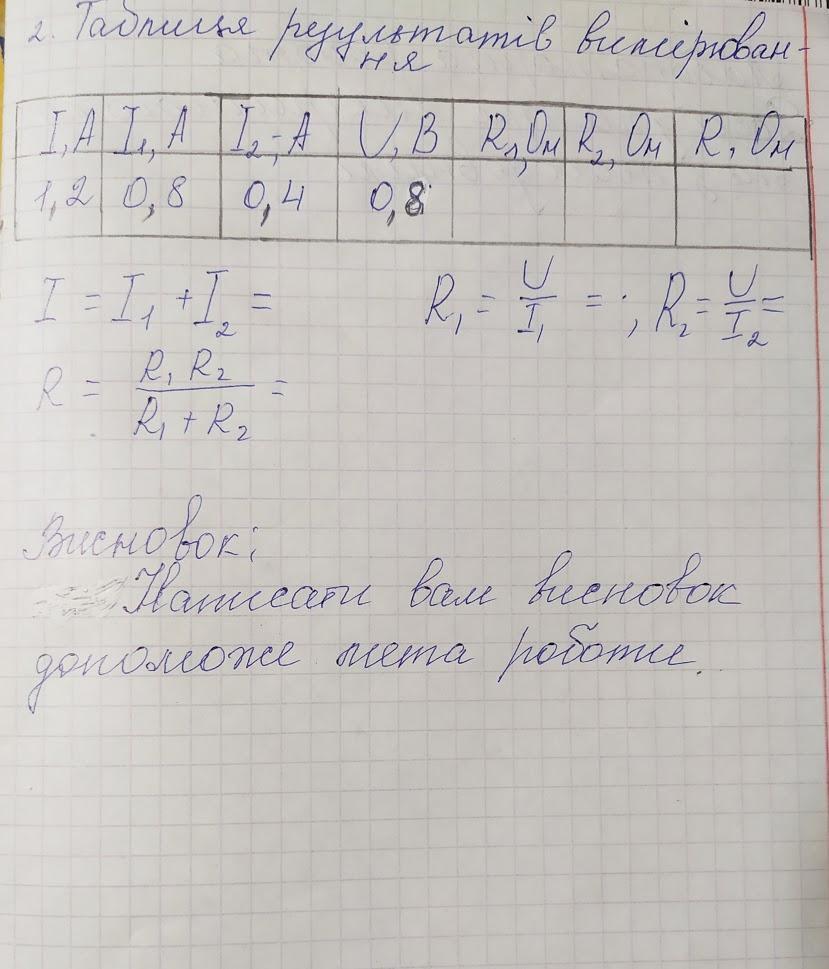 2. Таблиця результатів вимірюван-
ня
I, A I₁, A I₂, A U, В R₁, Ом R₂, Ом R, Ом
1,2 0,8 0,4 0,8
I = I₁ + I₂ = R₁ = U/I₁ = ; R₂ = U/I₂ =
R = R₁ R₂ / R₁ + R₂ =
Висновок:
Написати вам висновок
допоможе мета роботи.